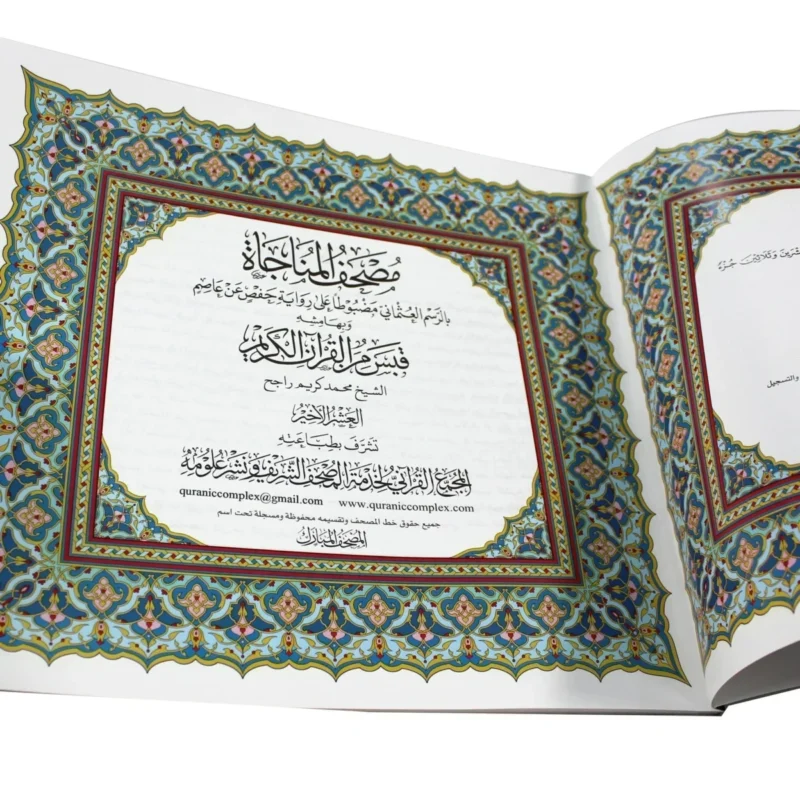 مُصْحَفُ المُنَاجَاة
بِالرَّسْمِ العُثْمَانِي مَضْبُوطًا عَلَى رِوَايَةِ حَفْصٍ عَنْ عَاصِم
وَبِهَامِشِهِ
قَبَسٌ مِنَ القُرْآنِ الكَرِيمِ
الشيخ محمد كريم راجح
العَشْرُ الأَخِيرُ
تَشَرَّفَ بِطِبَاعَتِهِ
المُجَمَّعُ القُرْآنِيُّ لِخِدْمَةِ المُصْحَفِ الشَّرِيفِ وَنَشْرِ عُلُومِهِ
quraniccomplex@gmail.com www.quraniccomplex.com
جميع حقوق خط المصحف وتقسيمه محفوظة ومسجلة تحت اسم
المُصْحَفُ المُبَارَك
وَثَلَاثِينَ جُزْءً
والتسجيل